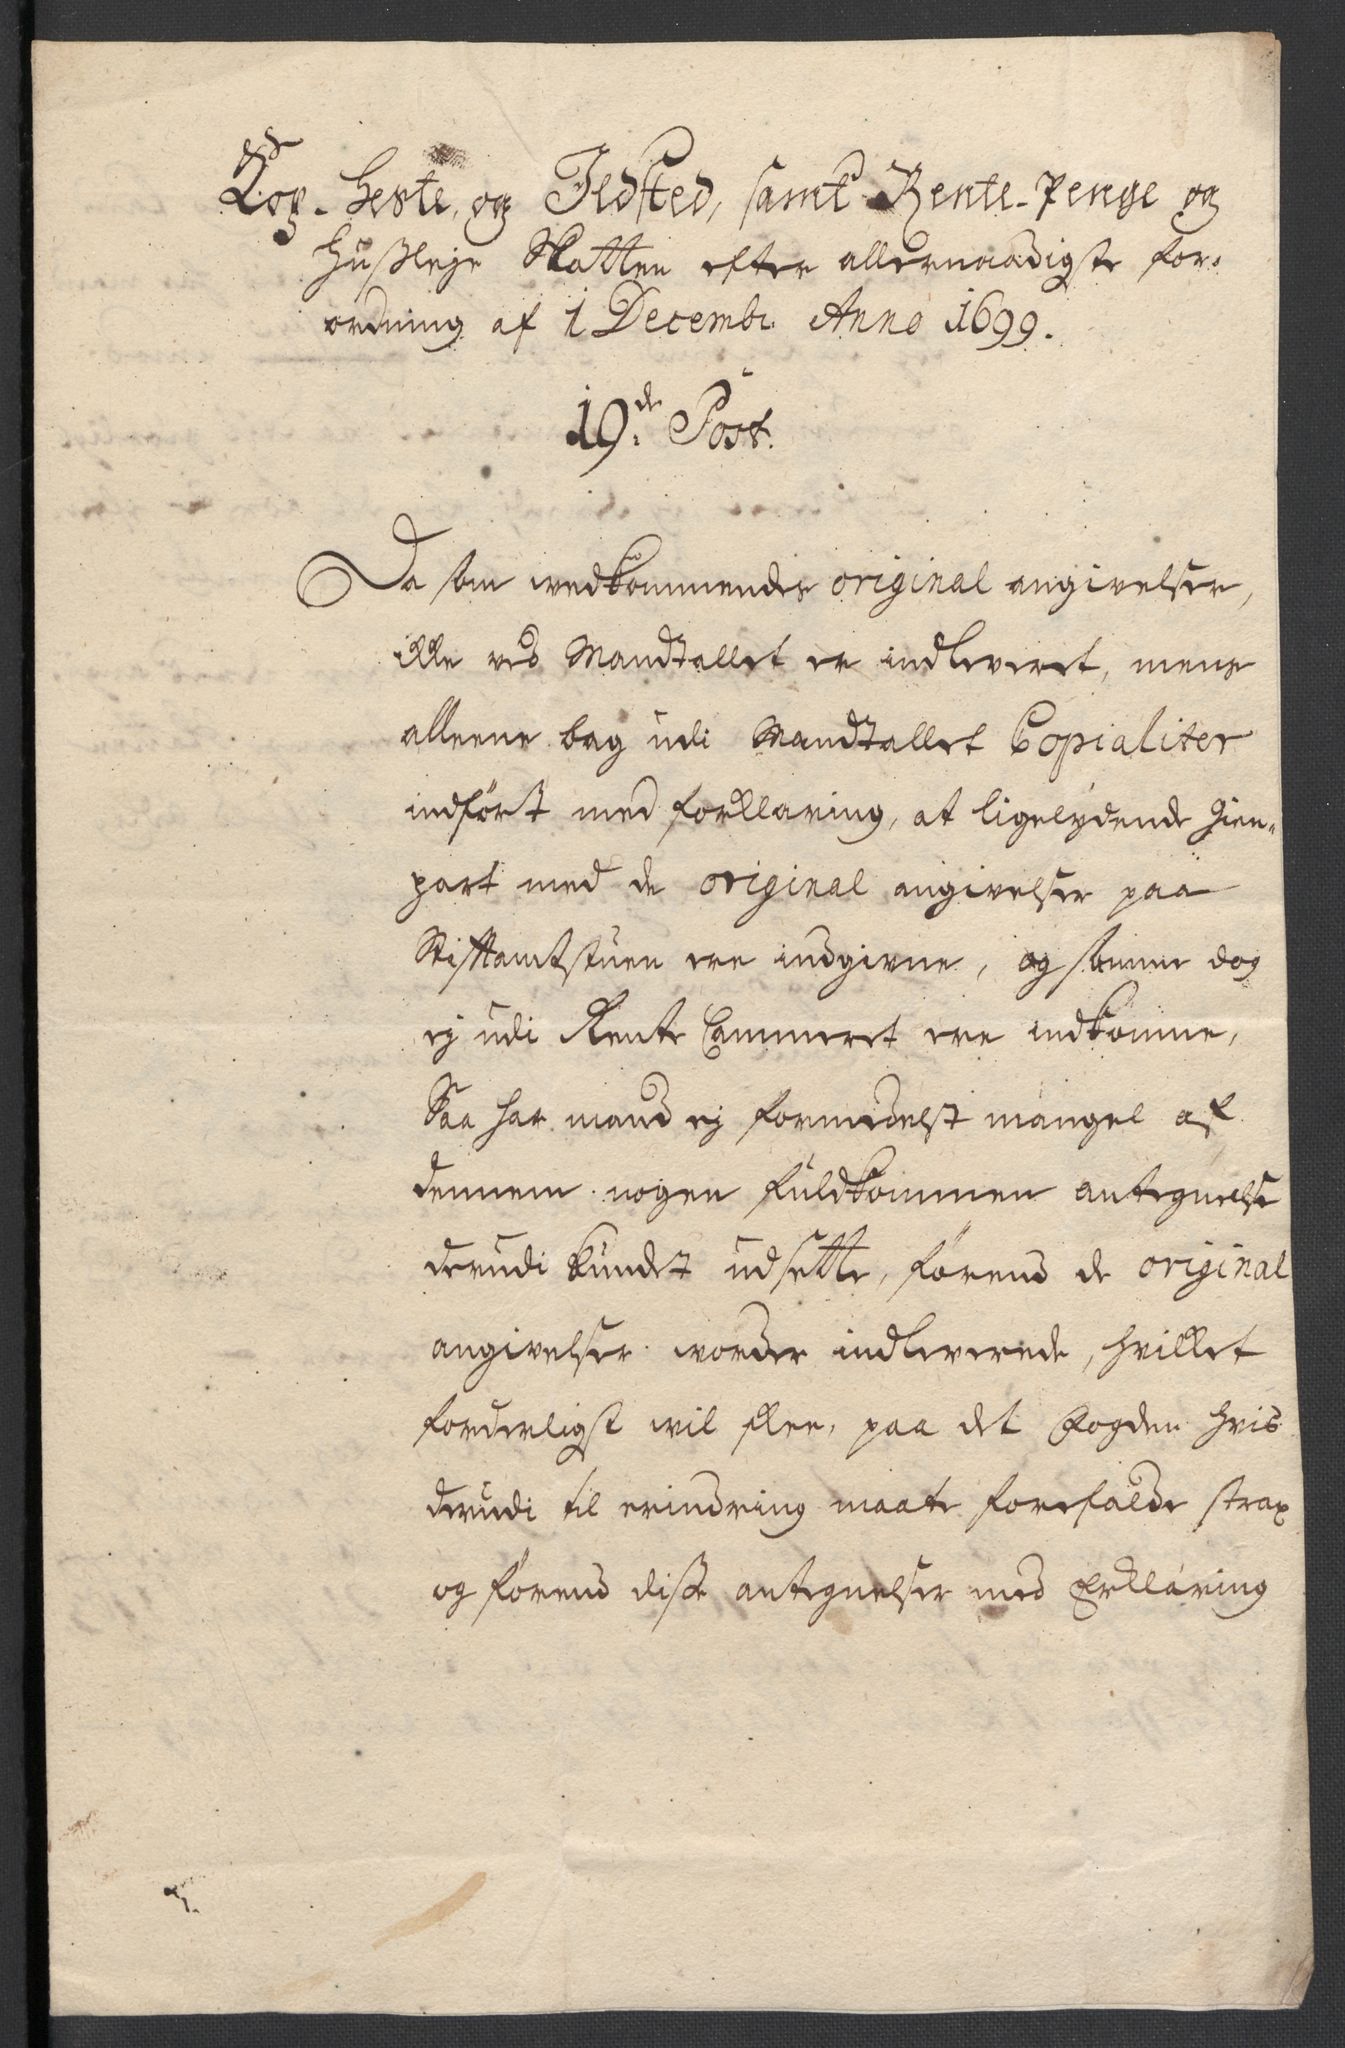 Kop- Heste, og Ildsted, samt Rente-Penge og
Huußleje Skatten efter allernaadigste for-
ordning af 1 Decembr. Anno 1699.
19de Post.
Da som wedkommendes original angivelser,
ikke ved Mandtallet er indleveret, mens
alleene bag udi Mandtallet Copialiter
indført med forklaring, at ligelydende Gien-
part med de original angivelser paa
Stiftamtstuen ere indgivne, og samme dog
ej udi Rente Cammeret ere indkomne,
Saa har mand ej formedelst mangel af
dennem nogen fuldkommen antegnelse
derudi kundet udsette, førend de original
angivelser worder indleverede, hvilket
forderligst wil skee, paa det Fogden hvis
derudi til erindring maate forefalde strax
og førend disse antegnelser med Erklaring